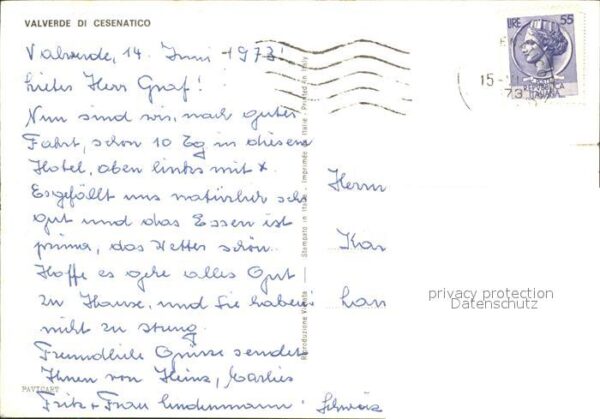 VALVERDE DI CESENATICO
Valverde, 14. Juni 1973!
Liebes Herr Graf!
Nun sind wir, nach guter
Fahrt, schon 10 Tg in diesem
Hotel, oben links mit x.
Es gefällt uns natürlich sehr
gut und das Essen ist
prima, das Wetter schön.
Hoffe es gehe alles Gut
zu Hause, und Sie haben's
nicht zu streng.
Freundliche Grüsse sendet
Ihnen von Heinz, Marlies
Fritz + Frau Lindenmann.
PAVICART
Riproduzione Vietata
Stampato in Italie - Imprimée en Italie - Printed in Italy
LIRE 55
REPUBBLICA
ITALIANA
15
73
Herrn
Kar
Lan
Schweiz
privacy protection
Datenschutz